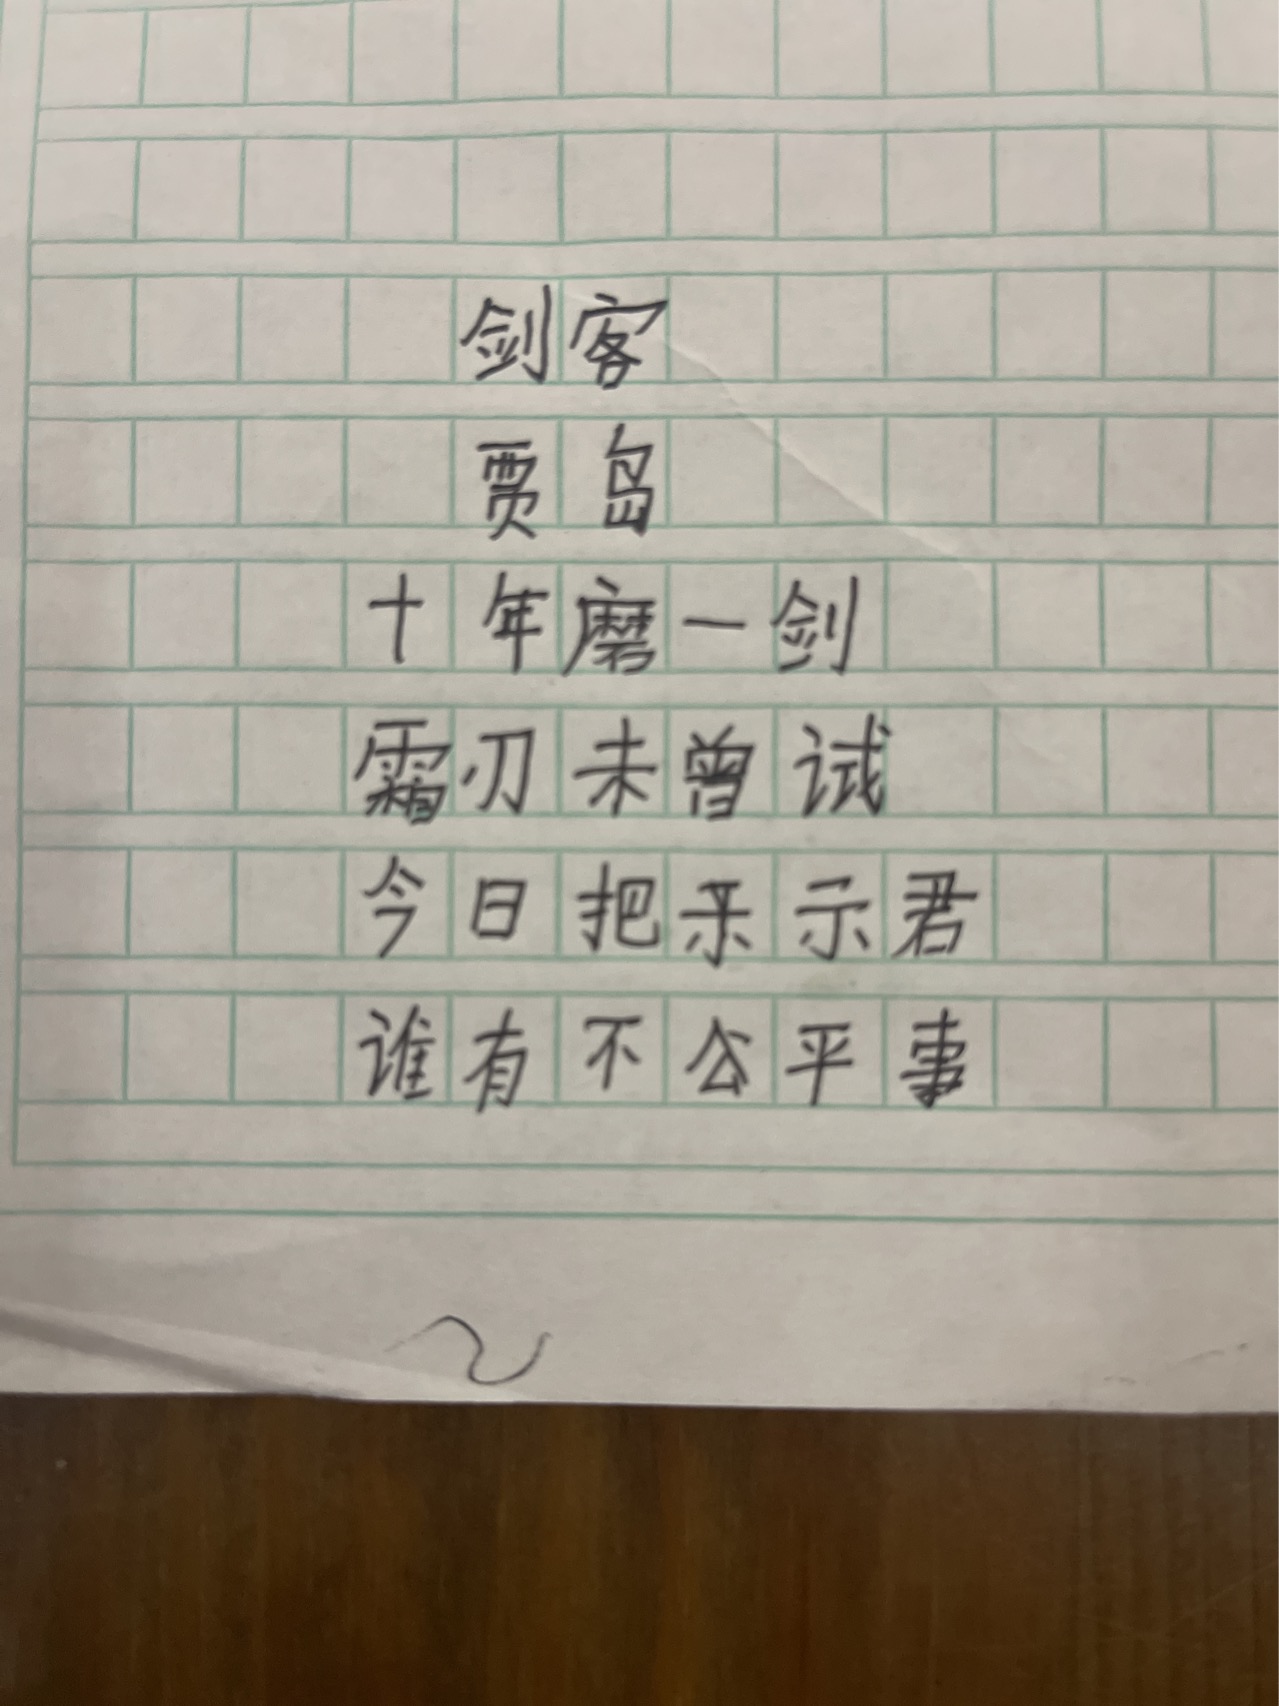 剑客
贾岛
十年磨一剑
霜刃未曾试
今日把示君
谁有不公平事